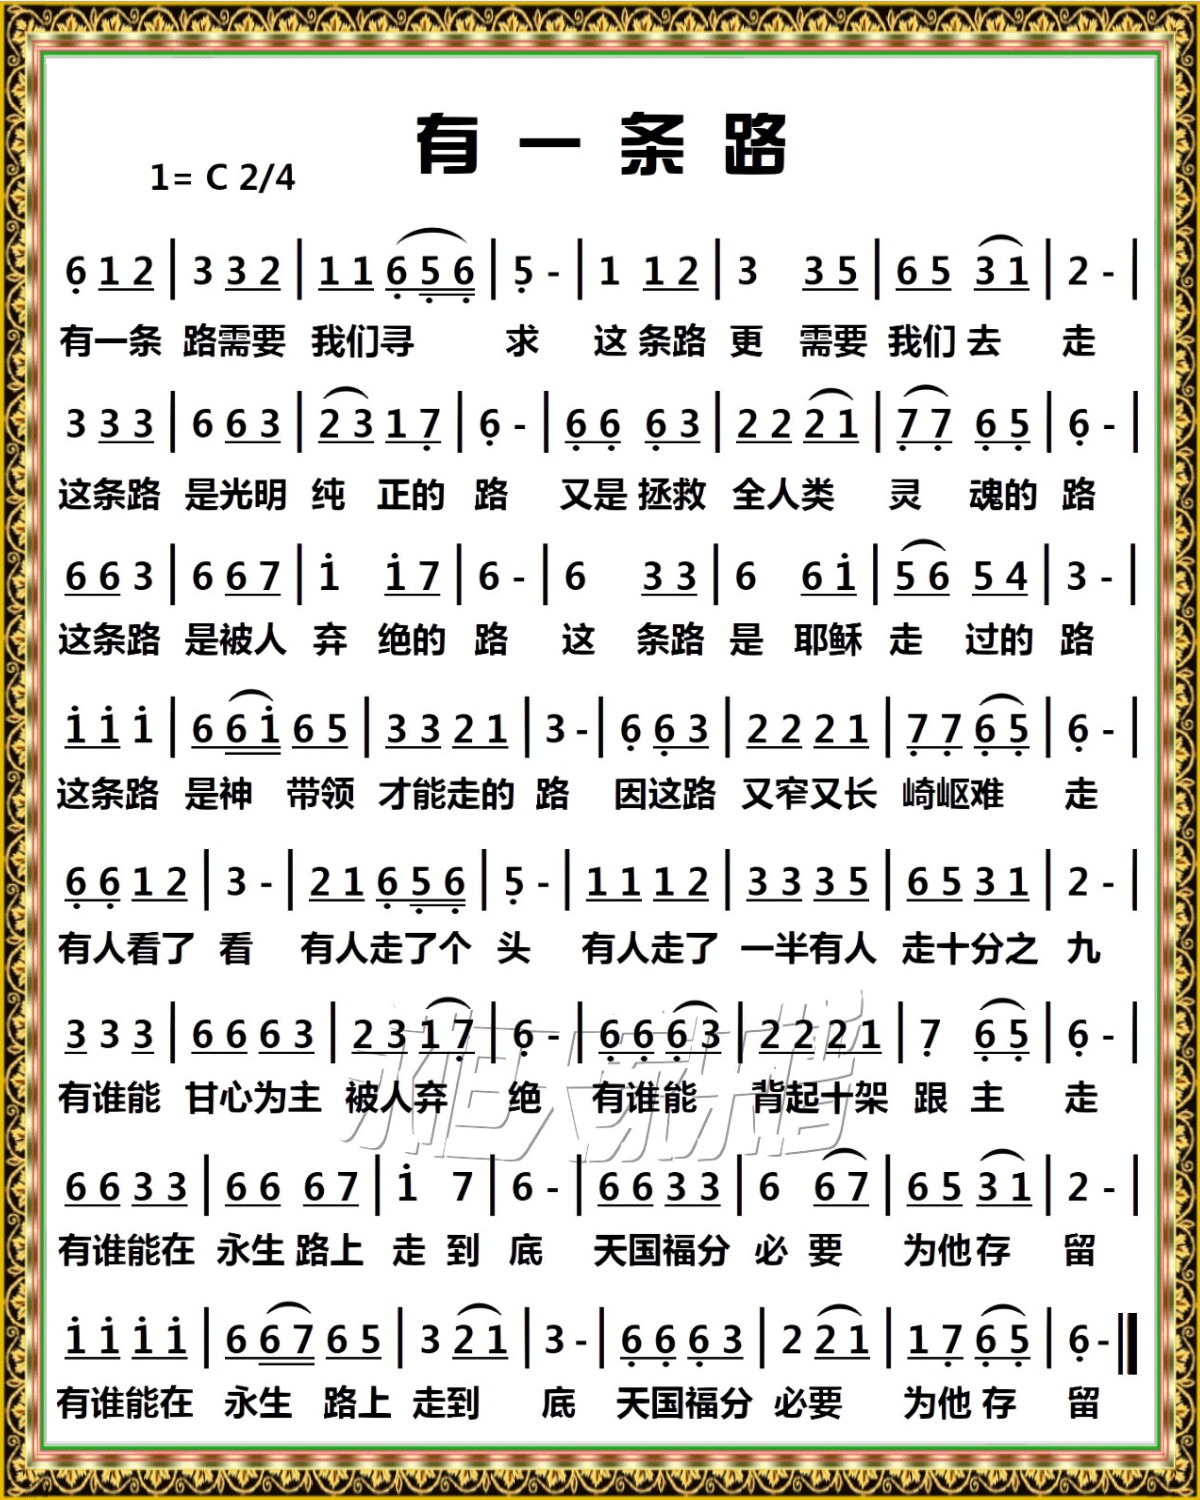 有一条路
1= C 2/4
6 1 2 | 3 3 2 | 1 1 6 5 6 | 5 - | 1 1 2 | 3 3 5 | 6 5 3 1 | 2 - |
有一条 路需要 我们寻 求 这条路 更 需要 我们去 走
3 3 3 | 6 6 3 | 2 3 1 7 | 6 - | 6 6 6 3 | 2 2 2 1 | 7 7 6 5 | 6 - |
这条路 是光明 纯 正的 路 又是拯救 全人类 灵 魂的 路
6 6 3 | 6 6 7 | 1 1 7 | 6 - | 6 3 3 | 6 6 1 | 5 6 5 4 | 3 - |
这条路 是被人 弃 绝的 路 这 条路 是 耶稣 走 过的 路
1 1 1 | 6 6 1 6 5 | 3 3 2 1 | 3 - | 6 6 3 | 2 2 2 1 | 7 7 6 5 | 6 - |
这条路 是神 带领 才能走的 路 因这路 又窄又长 崎岖难 走
6 6 1 2 | 3 - | 2 1 6 5 6 | 5 - | 1 1 1 2 | 3 3 3 5 | 6 5 3 1 | 2 - |
有人看了 看 有人走了个 头 有人走了 一半有人 走十分之 九
3 3 3 | 6 6 6 3 | 2 3 1 7 | 6 - | 6 6 6 3 | 2 2 2 1 | 7 6 5 | 6 - |
有谁能 甘心为主 被人弃 绝 有谁能 背起十架 跟 主 走
6 6 3 3 | 6 6 6 7 | 1 7 | 6 - | 6 6 3 3 | 6 6 7 | 6 5 3 1 | 2 - |
有谁能在 永生 路上 走 到 底 天国福分 必 要 为他存 留
1 1 1 1 | 6 6 7 6 5 | 3 2 1 | 3 - | 6 6 6 3 | 2 2 1 | 1 7 6 5 | 6 - ‖
有谁能在 永生 路上 走到 底 天国福分 必要 为他存 留